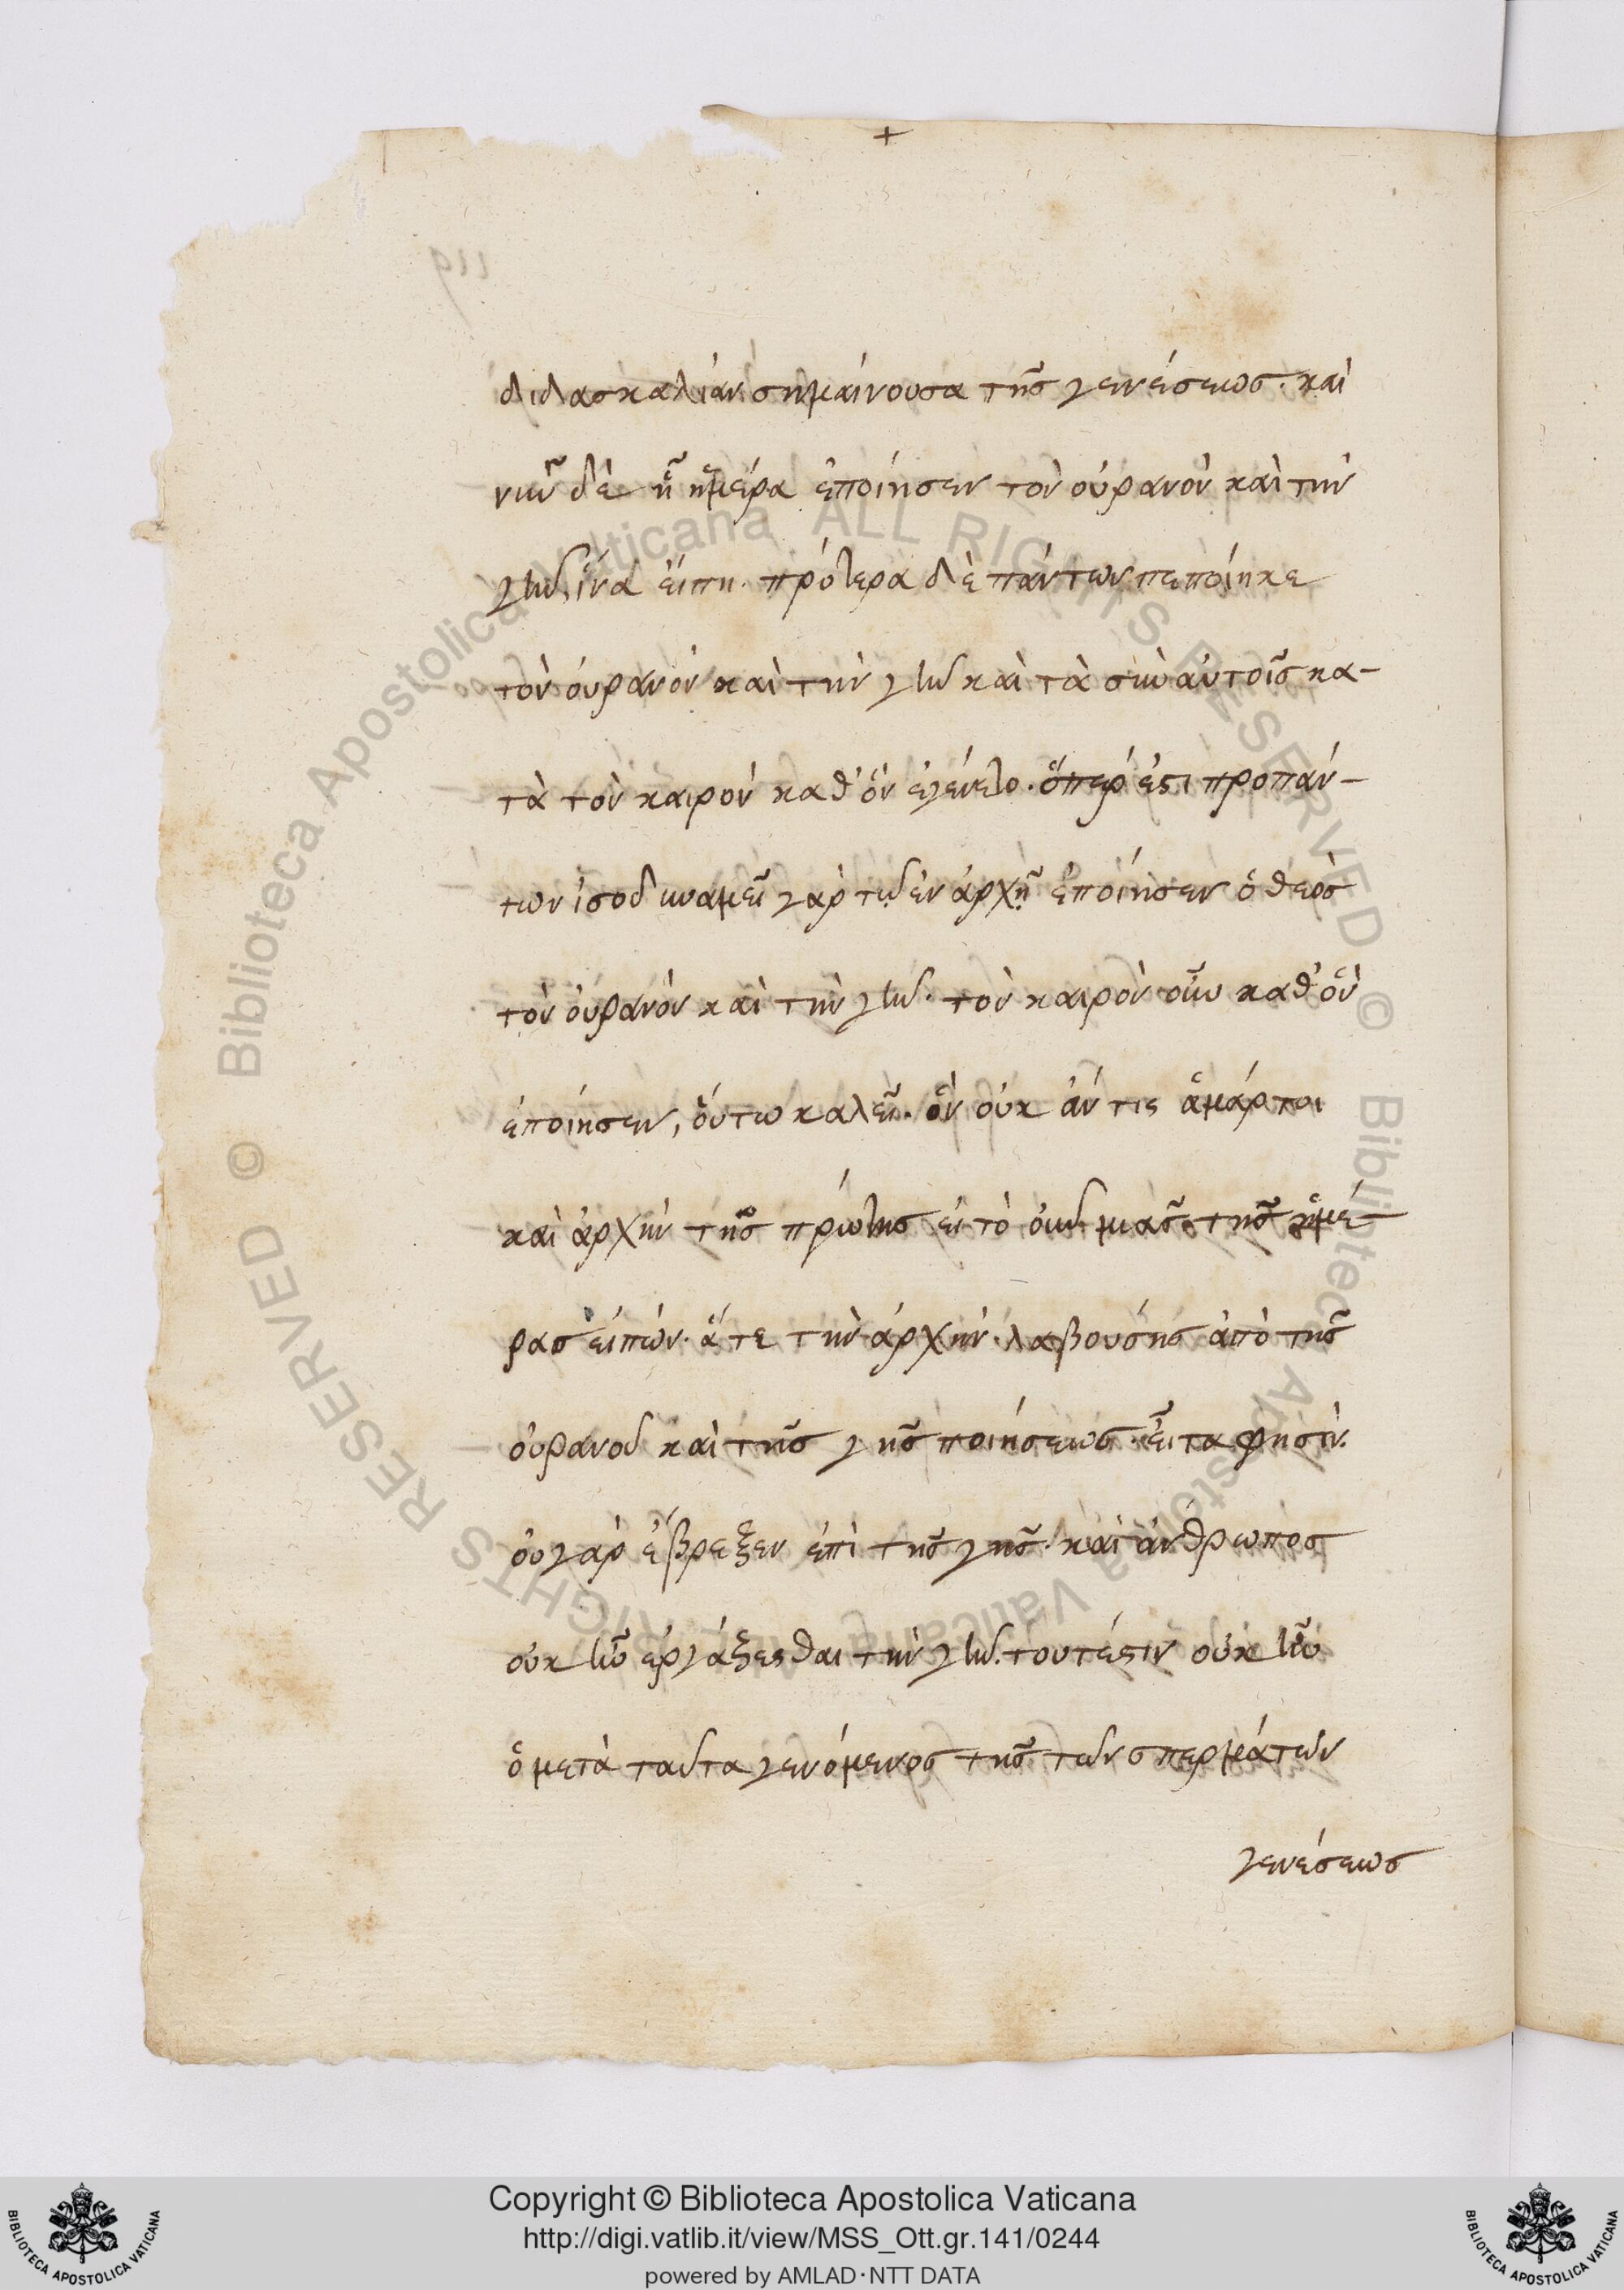 +
διδασκαλίαν σημαίνουσα τῆς γενέσεως. καὶ
νῦν δὲ ᾗ ἡμέρᾳ ἐποίησεν τὸν οὐρανὸν καὶ τὴν
γῆν, ἵνα εἴπῃ. πρότερα δὲ πάντων πεποίηκε
τὸν οὐρανὸν καὶ τὴν γῆν καὶ τὰ σὺν αὐτοῖς κα-
τὰ τὸν καιρὸν καθ' ὃν ἐγένετο. ὅπερ ἐστι προπάν-
των ἰσοδυναμεῖ γὰρ τῷ ἐν ἀρχῇ ἐποίησεν ὁ θεὸς
τὸν οὐρανὸν καὶ τὴν γῆν. τὸν καιρὸν οὖν καθ' ὃν
ἐποίησεν, οὕτω καλεῖ. ὃν οὐκ ἄν τις ἁμάρτοι
καὶ ἀρχὴν τῆς πρώτης εἰ τὸ οὖν μιᾶς τῆς ἡμέ-
ρας εἰπών. ἅτε τὴν ἀρχὴν λαβούσης ἀπὸ τῆς
οὐρανοῦ καὶ τῆς γῆς ποιήσεως. εἶτα φησίν.
οὐ γὰρ ἔβρεξεν ἐπὶ τῆς γῆς. καὶ ἄνθρωπος
οὐκ ἦν ἐργάζεσθαι τὴν γῆν. τουτέστιν οὐκ ἦν
ὁ μετὰ ταῦτα γενόμενος τῆς τῶν σπερμάτων
γενέσεως
© Biblioteca Apostolica Vaticana ALL RIGHTS RESERVED © Biblioteca Apostolica Vaticana ALL RIGHTS RESERVED
Copyright © Biblioteca Apostolica Vaticana
http://digi.vatlib.it/view/MSS_Ott.gr.141/0244
powered by AMLAD·NTT DATA
BIBLIOTECA APOSTOLICA VATICANA
BIBLIOTECA APOSTOLICA VATICANA